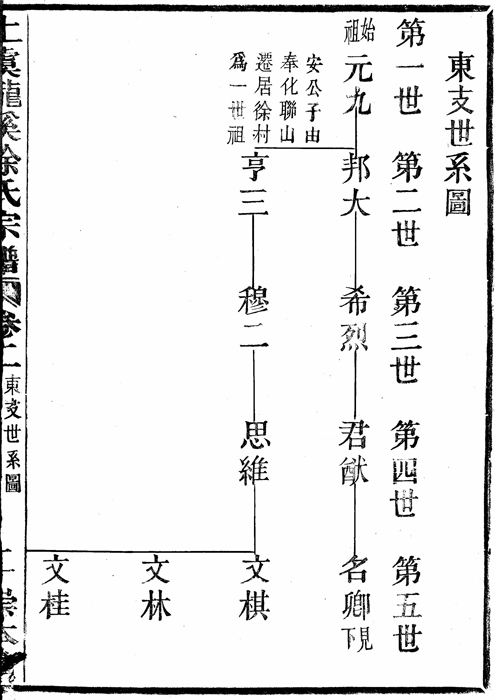 東支世系圖
第一世 第二世 第三世 第四世 第五世
始祖 元九 邦大 希烈 君猷 名卿 見下
安公子由
奉化聯山
遷居徐村
為一世祖
亨三 穆二 思維 文棋
文林
文桂
上虞龍溪徐氏宗譜 卷二 東支世系圖